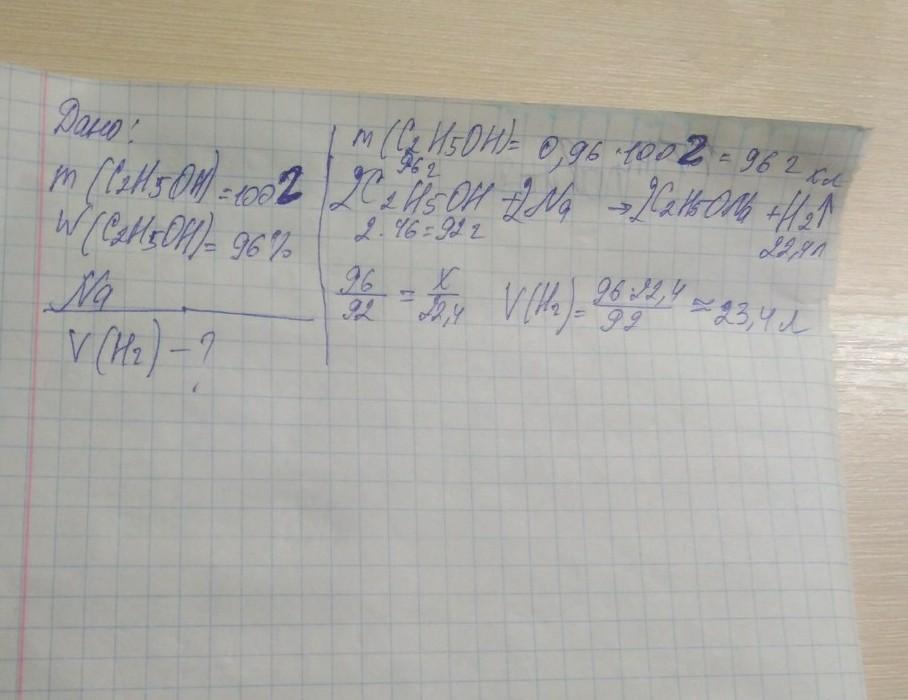 Дано:
m (C2H5OH) = 100 г
W (C2H5OH) = 96%
Na
V (H2) - ?
m (C2H5OH) = 0,96 · 100 г = 96 г
96 г
x л
2C2H5OH + 2Na → 2C2H5ONa + H2↑
2 · 46 = 92 г
22,4 л
96/92 = x/22,4 V(H2) = 96·22,4/92 ≈ 23,4 л